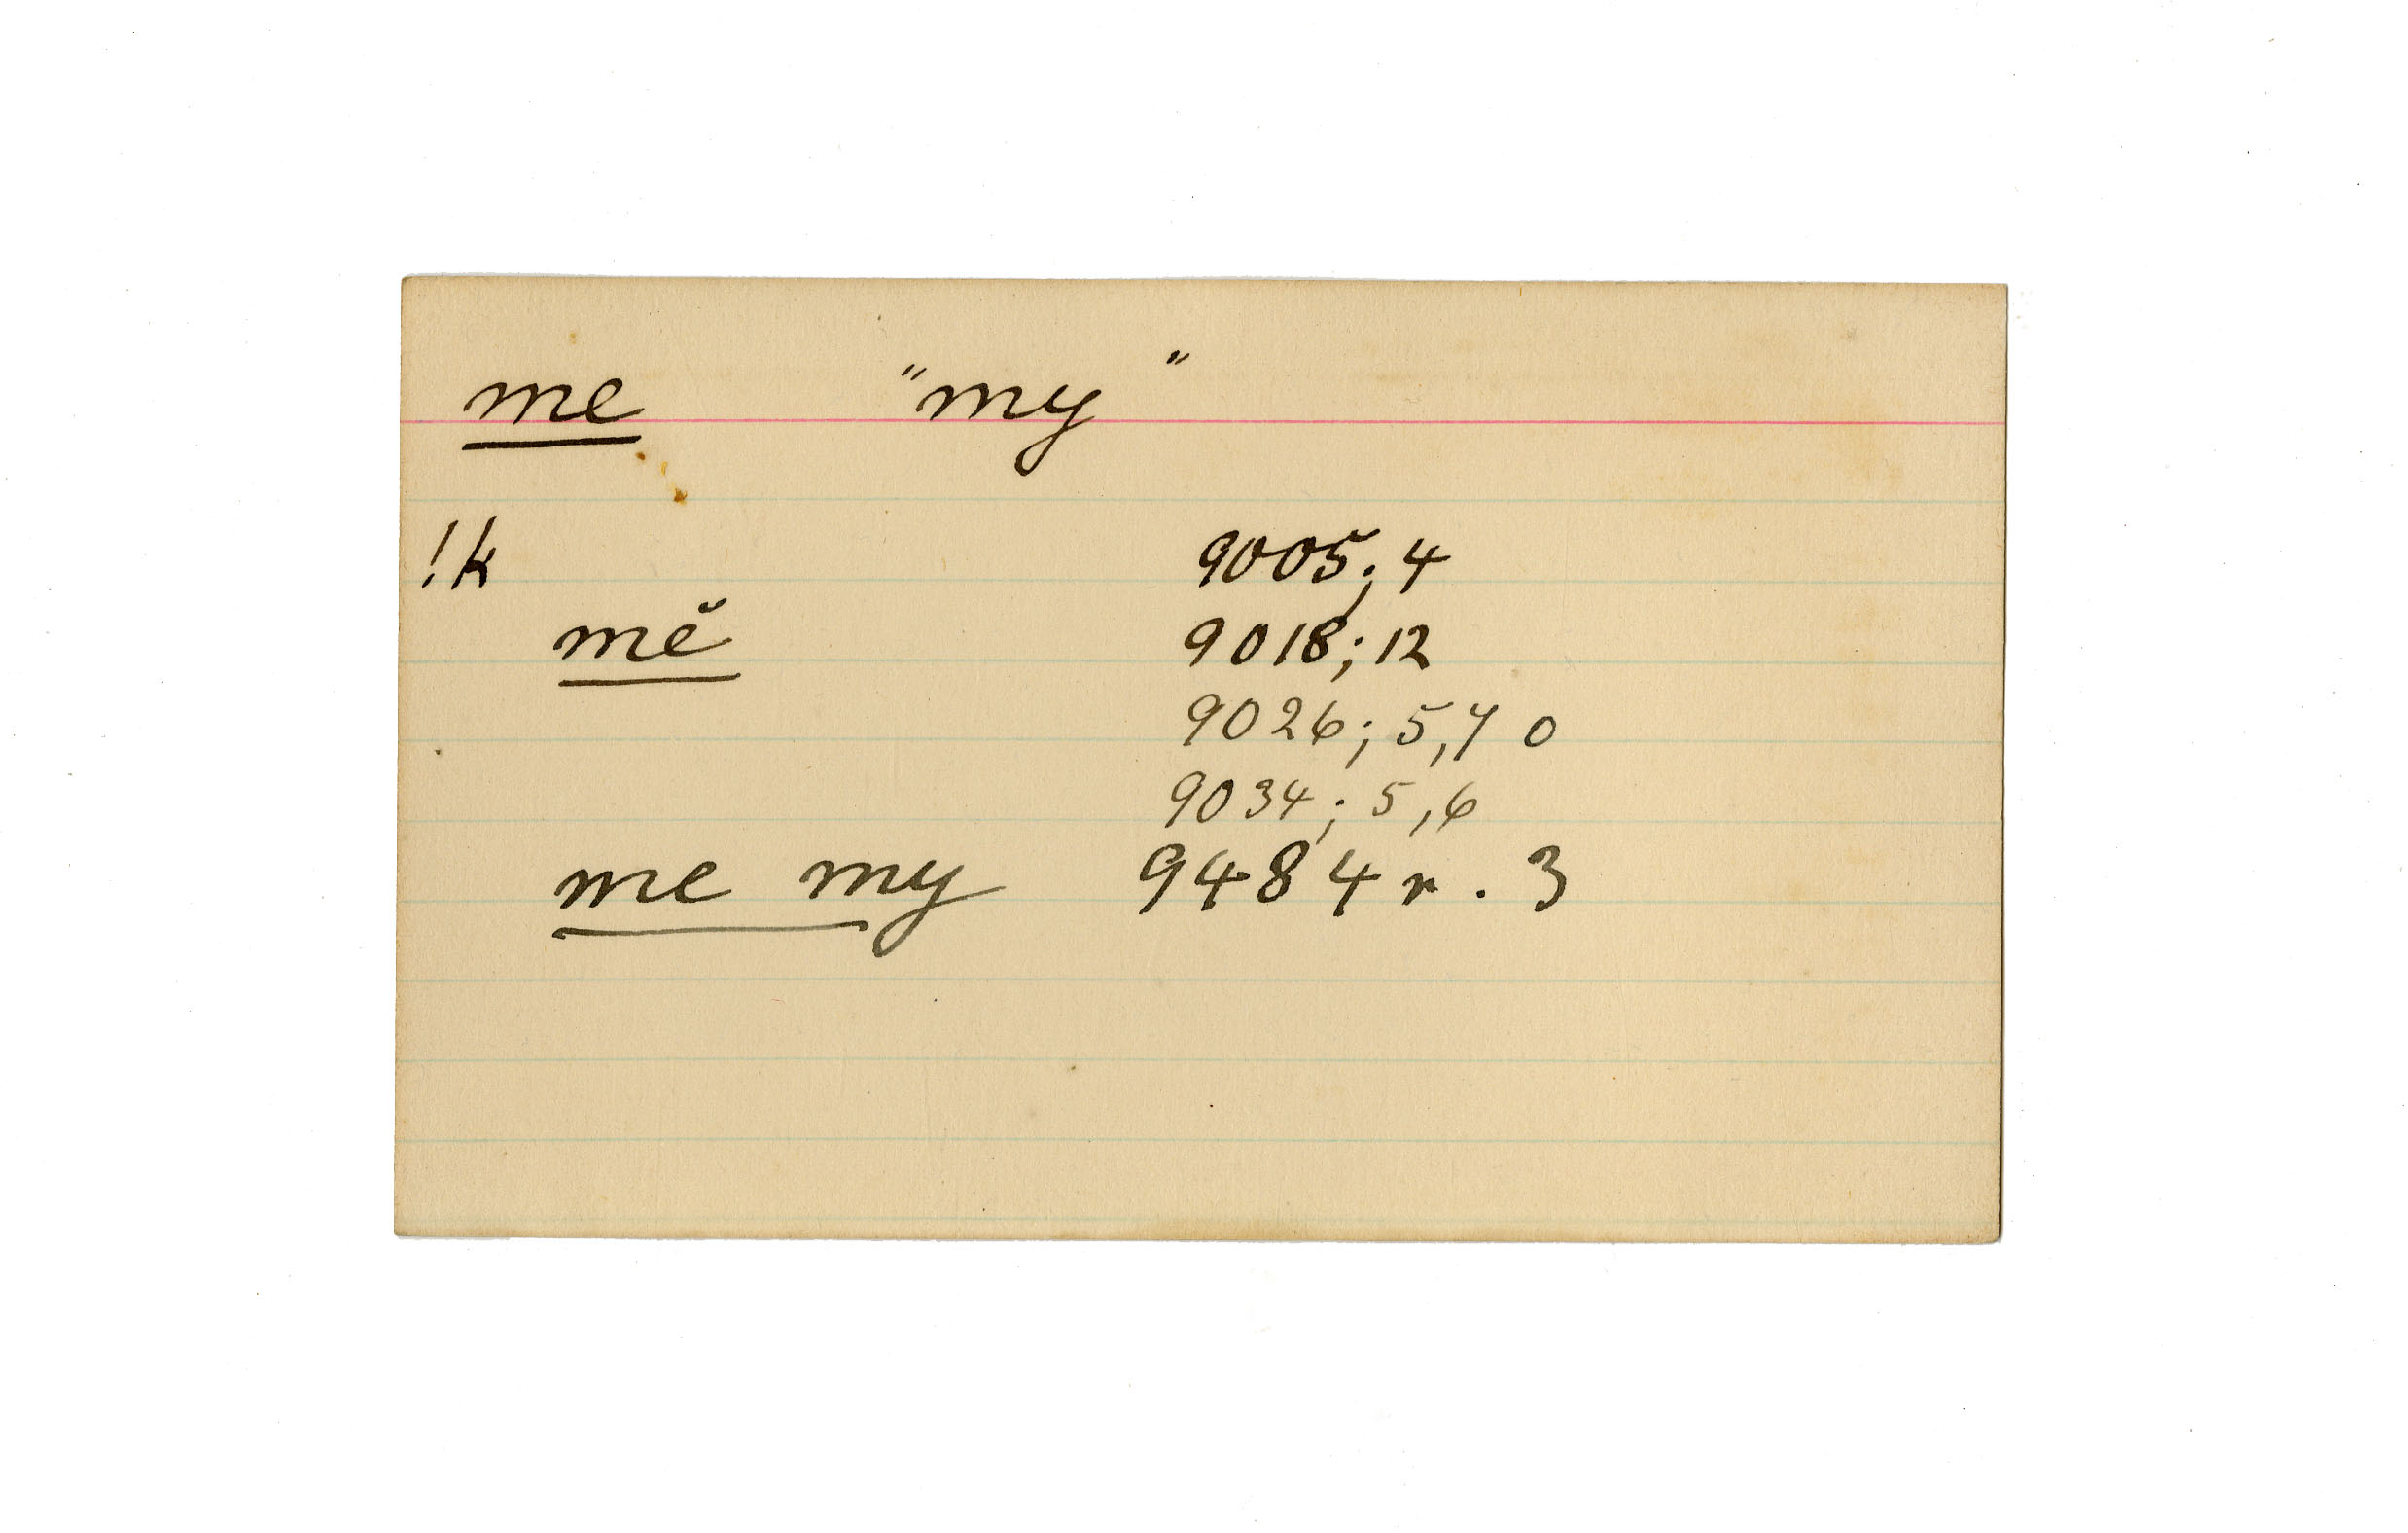 me "my"
!k 9005; 4
mĕ 9018; 12
9026; 5,7 0
9034; 5,6
me my 9484 r. 3